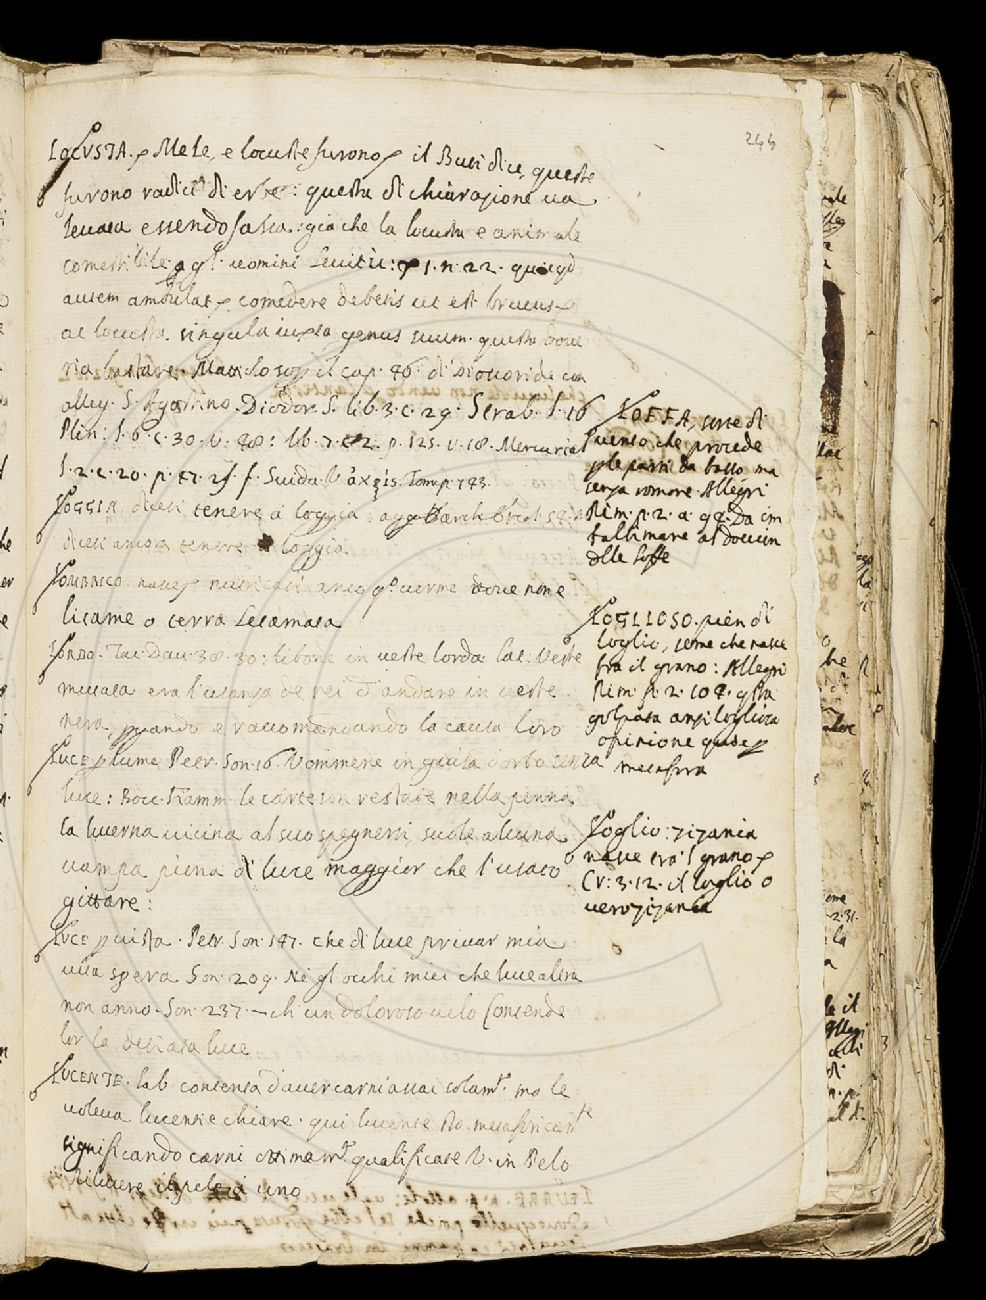 244
LOCUSTA. Mele, e locuste furono, il Buti dice, queste
furono radici di erbe: questa dichiarazione va
levata essendo falsa: già che la locusta e animale
comestibile agl' uomini Levitic: 11. n. 22. quicqd
autem ambulat comedere debetis ut est bruchus
ac locusta singula iuxta genus suum. questo dove
ria bastare. Mattiolo sop. il cap. 46. di Dioscoride con
alleg. S. Agostino. Diodor. S. lib. 3. c. 29. Strab. l. 16
Plin: l. 6. c. 30. lib. 7. c. 2. p. 125. v. 18. Mercurial
l. 2. c. 20. p. Suida. V. Tom. p. 783.
LOGGIA, dicesi tenere a loggia:
dicesi ancora tenere loggia.
LOMBRICO. nutricati anco q.o verme dove non e
licame o terra letamata
LORDO. Tac. Dav. 38. 30: libone in veste lorda lat: Veste
mutata era l'usanza de rei d'andare in veste
nera, quando e raccomandando la causa loro
LUCE p lume Petr. Son. 16. Vommene in guisa d'orbo senza
luce: Bocc. Fiamm. le carte son restate nella penna
la lucerna vicina al suo spegnersi, suole alcuna
vampa piena di luce maggior che l'usato
gittare:
LUCE p vista. Petr. Son. 187. che di luce privar mia
vita spera Son. 209. Ne gl'occhi miei che luce altra
non anno. Son. 237. – ch'un doloroso velo Contende
lor la desiata luce
LUCENTE. lab. contenta d'aver carni assai solam.te mo le
voleva lucenti e chiare. qui lucente sta metaforicam.te
significando carni ottimam.te qualificate V. in Pelo
rilucere il pelo a uno
LOFFA, sorte di
vento che procede
p le parti da basso ma
senza romore. Allegri
Rim. p. 2. a 92. Da im
balsimare al dovun
delle loffe
LOGLIOSO. pien di
loglio, seme che nasce
fra il grano: Allegri
Rim. p. 2. 108. q.sta
golpata anzi logliosa
opinione quise p
metafora
Loglio: zizania
nasce tra 'l grano
Cr: 3. 12. il loglio o
vero zizania